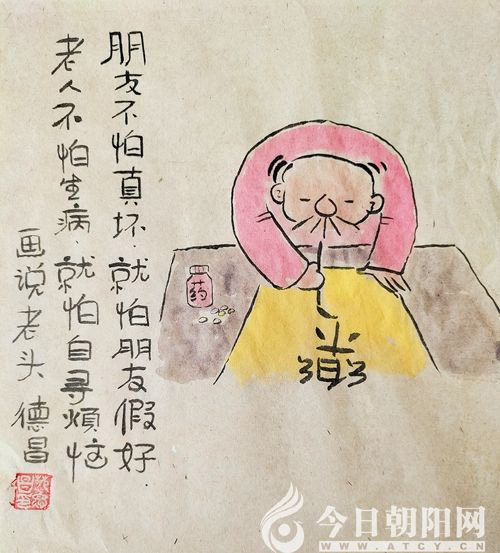 朋友不怕真坏.就怕朋友假好.
老人不怕生病.就怕自寻煩恼
画说老头 德昌
药
今日朝阳网
WWW.ATCY.CN